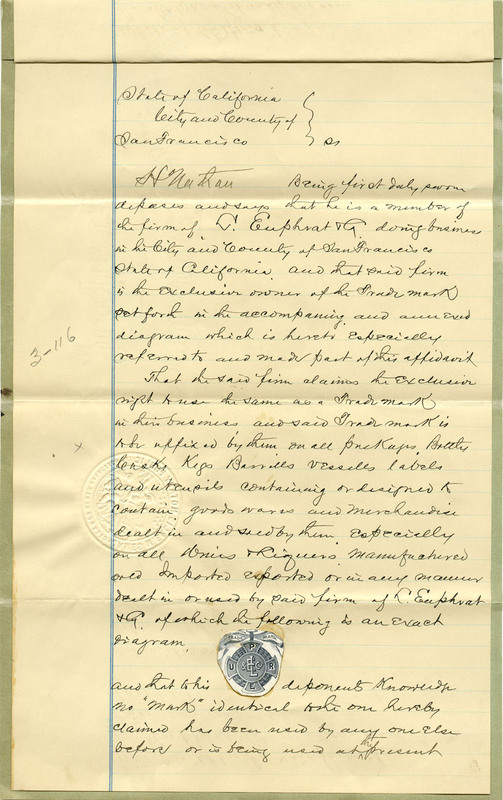 State of California
City and County of
San Francisco ss
H Nathan Being first duly sworn
deposes and says that he is a member of
the firm of L. Euphrat & Co. doing business
in the City and County of San Francisco
State of California and that said firm
is the exclusive owner of the Trade mark
set forth in the accompaning and annexed
diagram which is hereto especially
referred to and made part of this affidavit
3-116
That the said firm claims the exclusive
right to use the same as a Trade mark
in their business and said Trade mark is
to be affixed by them on all packages, Bottles
Casks, Kegs Barrells vessells labels
and utensils containing or designed to
contain goods wares and merchandise
dealt in and used by them especially
on all Wines & Liquers manufactured
Imported exported or in any manner
dealt in or used by said firm of L. Euphrat
& Co. of which the following is an exact
diagram.
and that to his deponents Knowledge
no "mark" identical to the one hereby
claimed has been used by any one else
before or is being used at the present